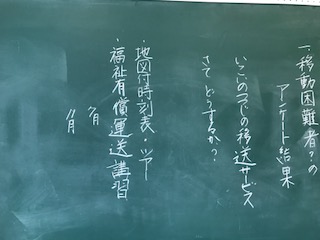 一.移動困難者?の
アンケート結果
いこいのつどの移送サービス
さて どうするか?
・地図付時刻表・ツアー
・福祉有償運送講習
〃月
〃月